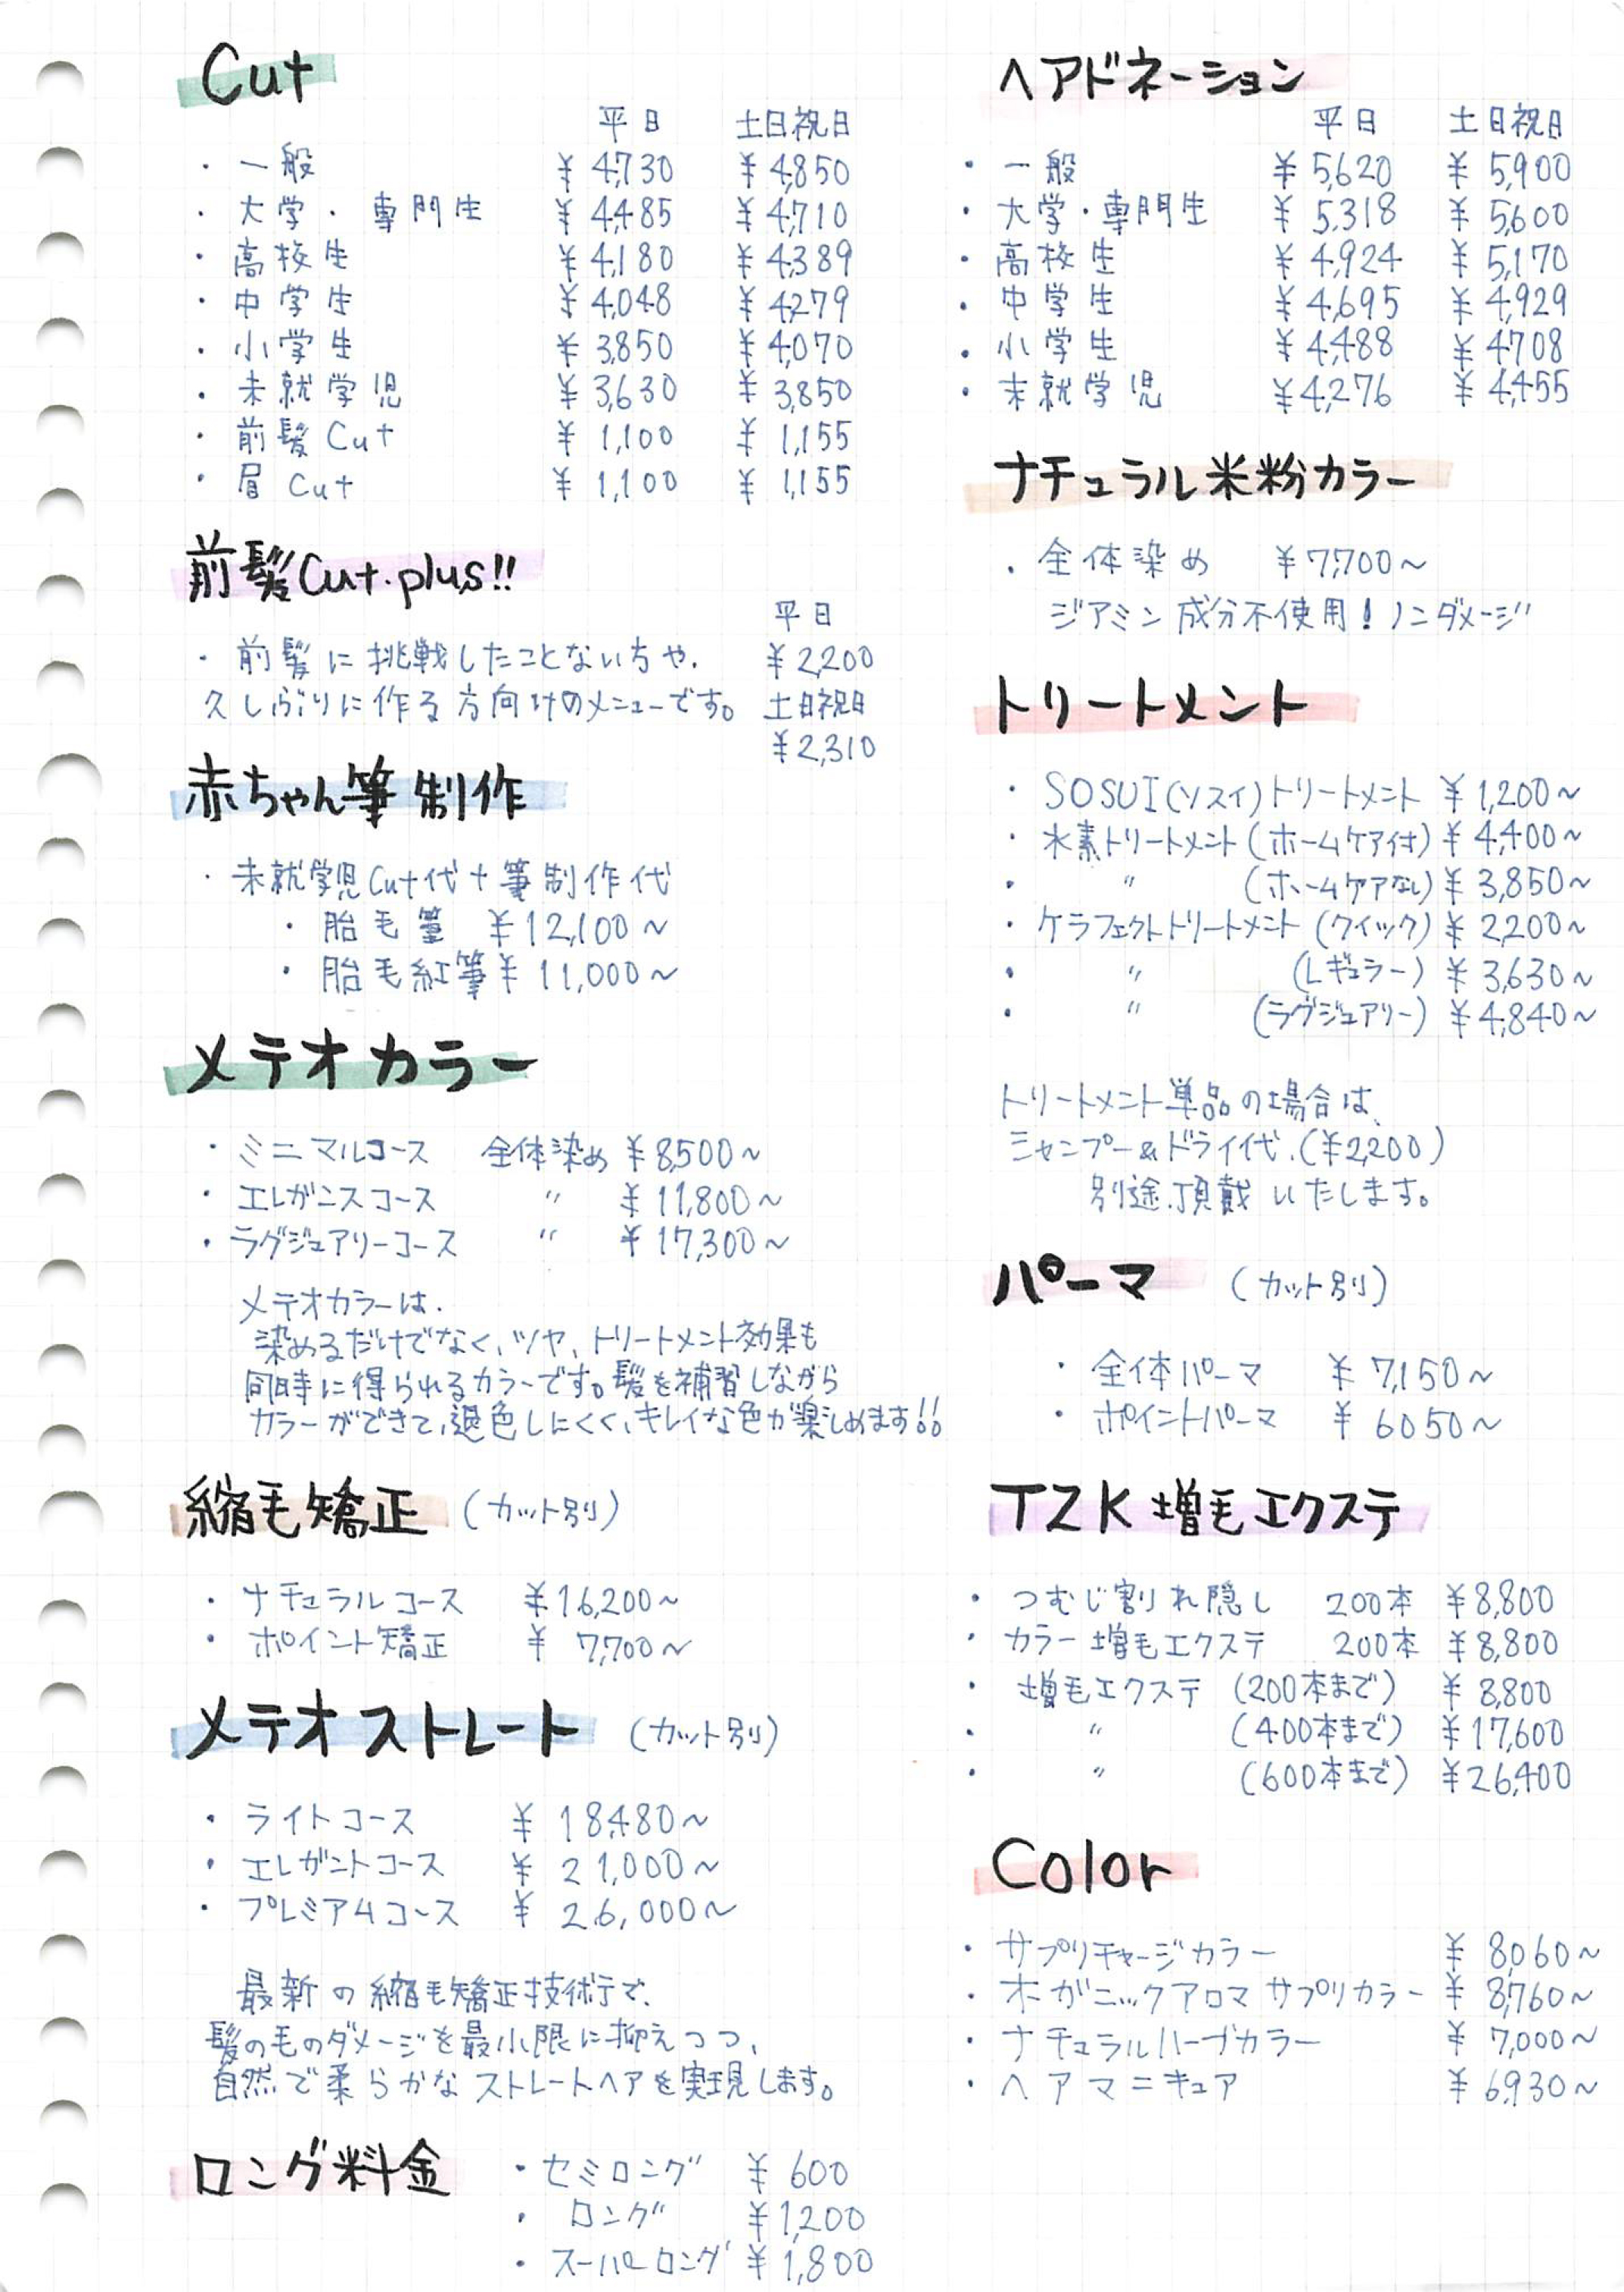 Cut
平日 土日祝日
・一般 ¥4,730 ¥4,850
・大学・専門生 ¥4,485 ¥4,710
・高校生 ¥4,180 ¥4,389
・中学生 ¥4,048 ¥4,279
・小学生 ¥3,850 ¥4,070
・未就学児 ¥3,630 ¥3,850
・前髪Cut ¥1,100 ¥1,155
・眉Cut ¥1,100 ¥1,155
前髪Cut.plus!!
平日
・前髪に挑戦したことない方や、 ¥2,200
久しぶりに作る方向けのメニューです。 土日祝日
¥2,310
赤ちゃん筆制作
・未就学児Cut代+筆制作代
・胎毛筆 ¥12,100~
・胎毛紅筆 ¥11,000~
メテオカラー
・ミニマルコース 全体染め ¥8,500~
・エレガンスコース 〃 ¥11,800~
・ラグジュアリーコース 〃 ¥17,300~
メテオカラーは、
染めるだけでなく、ツヤ、トリートメント効果も
同時に得られるカラーです。髪を補習しながら
カラーができて、退色しにくく、キレイな色が楽しめます!!
縮毛矯正 (カット別)
・ナチュラルコース ¥16,200~
・ポイント矯正 ¥7,700~
メテオストレート (カット別)
・ライトコース ¥18,480~
・エレガントコース ¥21,000~
・プレミアムコース ¥26,000~
最新の縮毛矯正技術で、
髪の毛のダメージを最小限に抑えつつ、
自然で柔らかなストレートヘアを実現します。
ロング料金
・セミロング ¥600
・ロング ¥1,200
・スーパーロング ¥1,800
ヘアドネーション
平日 土日祝日
・一般 ¥5,620 ¥5,900
・大学・専門生 ¥5,318 ¥5,600
・高校生 ¥4,924 ¥5,170
・中学生 ¥4,695 ¥4,929
・小学生 ¥4,488 ¥4,708
・未就学児 ¥4,276 ¥4,455
ナチュラル米粉カラー
・全体染め ¥7,700~
ジアミン成分不使用!ノンダメージ
トリートメント
・SOSUI(ソスイ)トリートメント ¥1,200~
・水素トリートメント(ホームケア付) ¥4,400~
・〃 (ホームケアなし) ¥3,850~
・ケラフェクトトリートメント(クイック) ¥2,200~
・〃 (レギュラー) ¥3,630~
・〃 (ラグジュアリー) ¥4,840~
トリートメント単品の場合は、
シャンプー&ドライ代、(¥2,200)
別途頂戴いたします。
パーマ (カット別)
・全体パーマ ¥7,150~
・ポイントパーマ ¥6050~
TZK増毛エクステ
・つむじ割れ隠し 200本 ¥8,800
・カラー増毛エクステ 200本 ¥8,800
・増毛エクステ (200本まで) ¥8,800
・〃 (400本まで) ¥17,600
・〃 (600本まで) ¥26,400
Color
・サプリチャージカラー ¥8,060~
・オガニックアロマサプリカラー ¥8,760~
・ナチュラルハーブカラー ¥7,000~
・ヘアマニキュア ¥6,930~